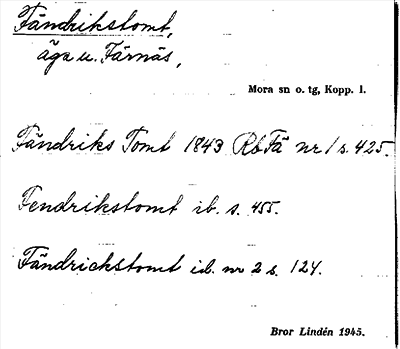 Fändrikstomt,
äga u. Färnäs,
Mora sn o. tg, Kopp. l.
Fändriks Tomt 1843 RbFä nr 1 s. 425.
Fendrikstomt ib. s. 455.
Fändrickstomt ib. nr 2 s. 124.
Bror Lindén 1945.